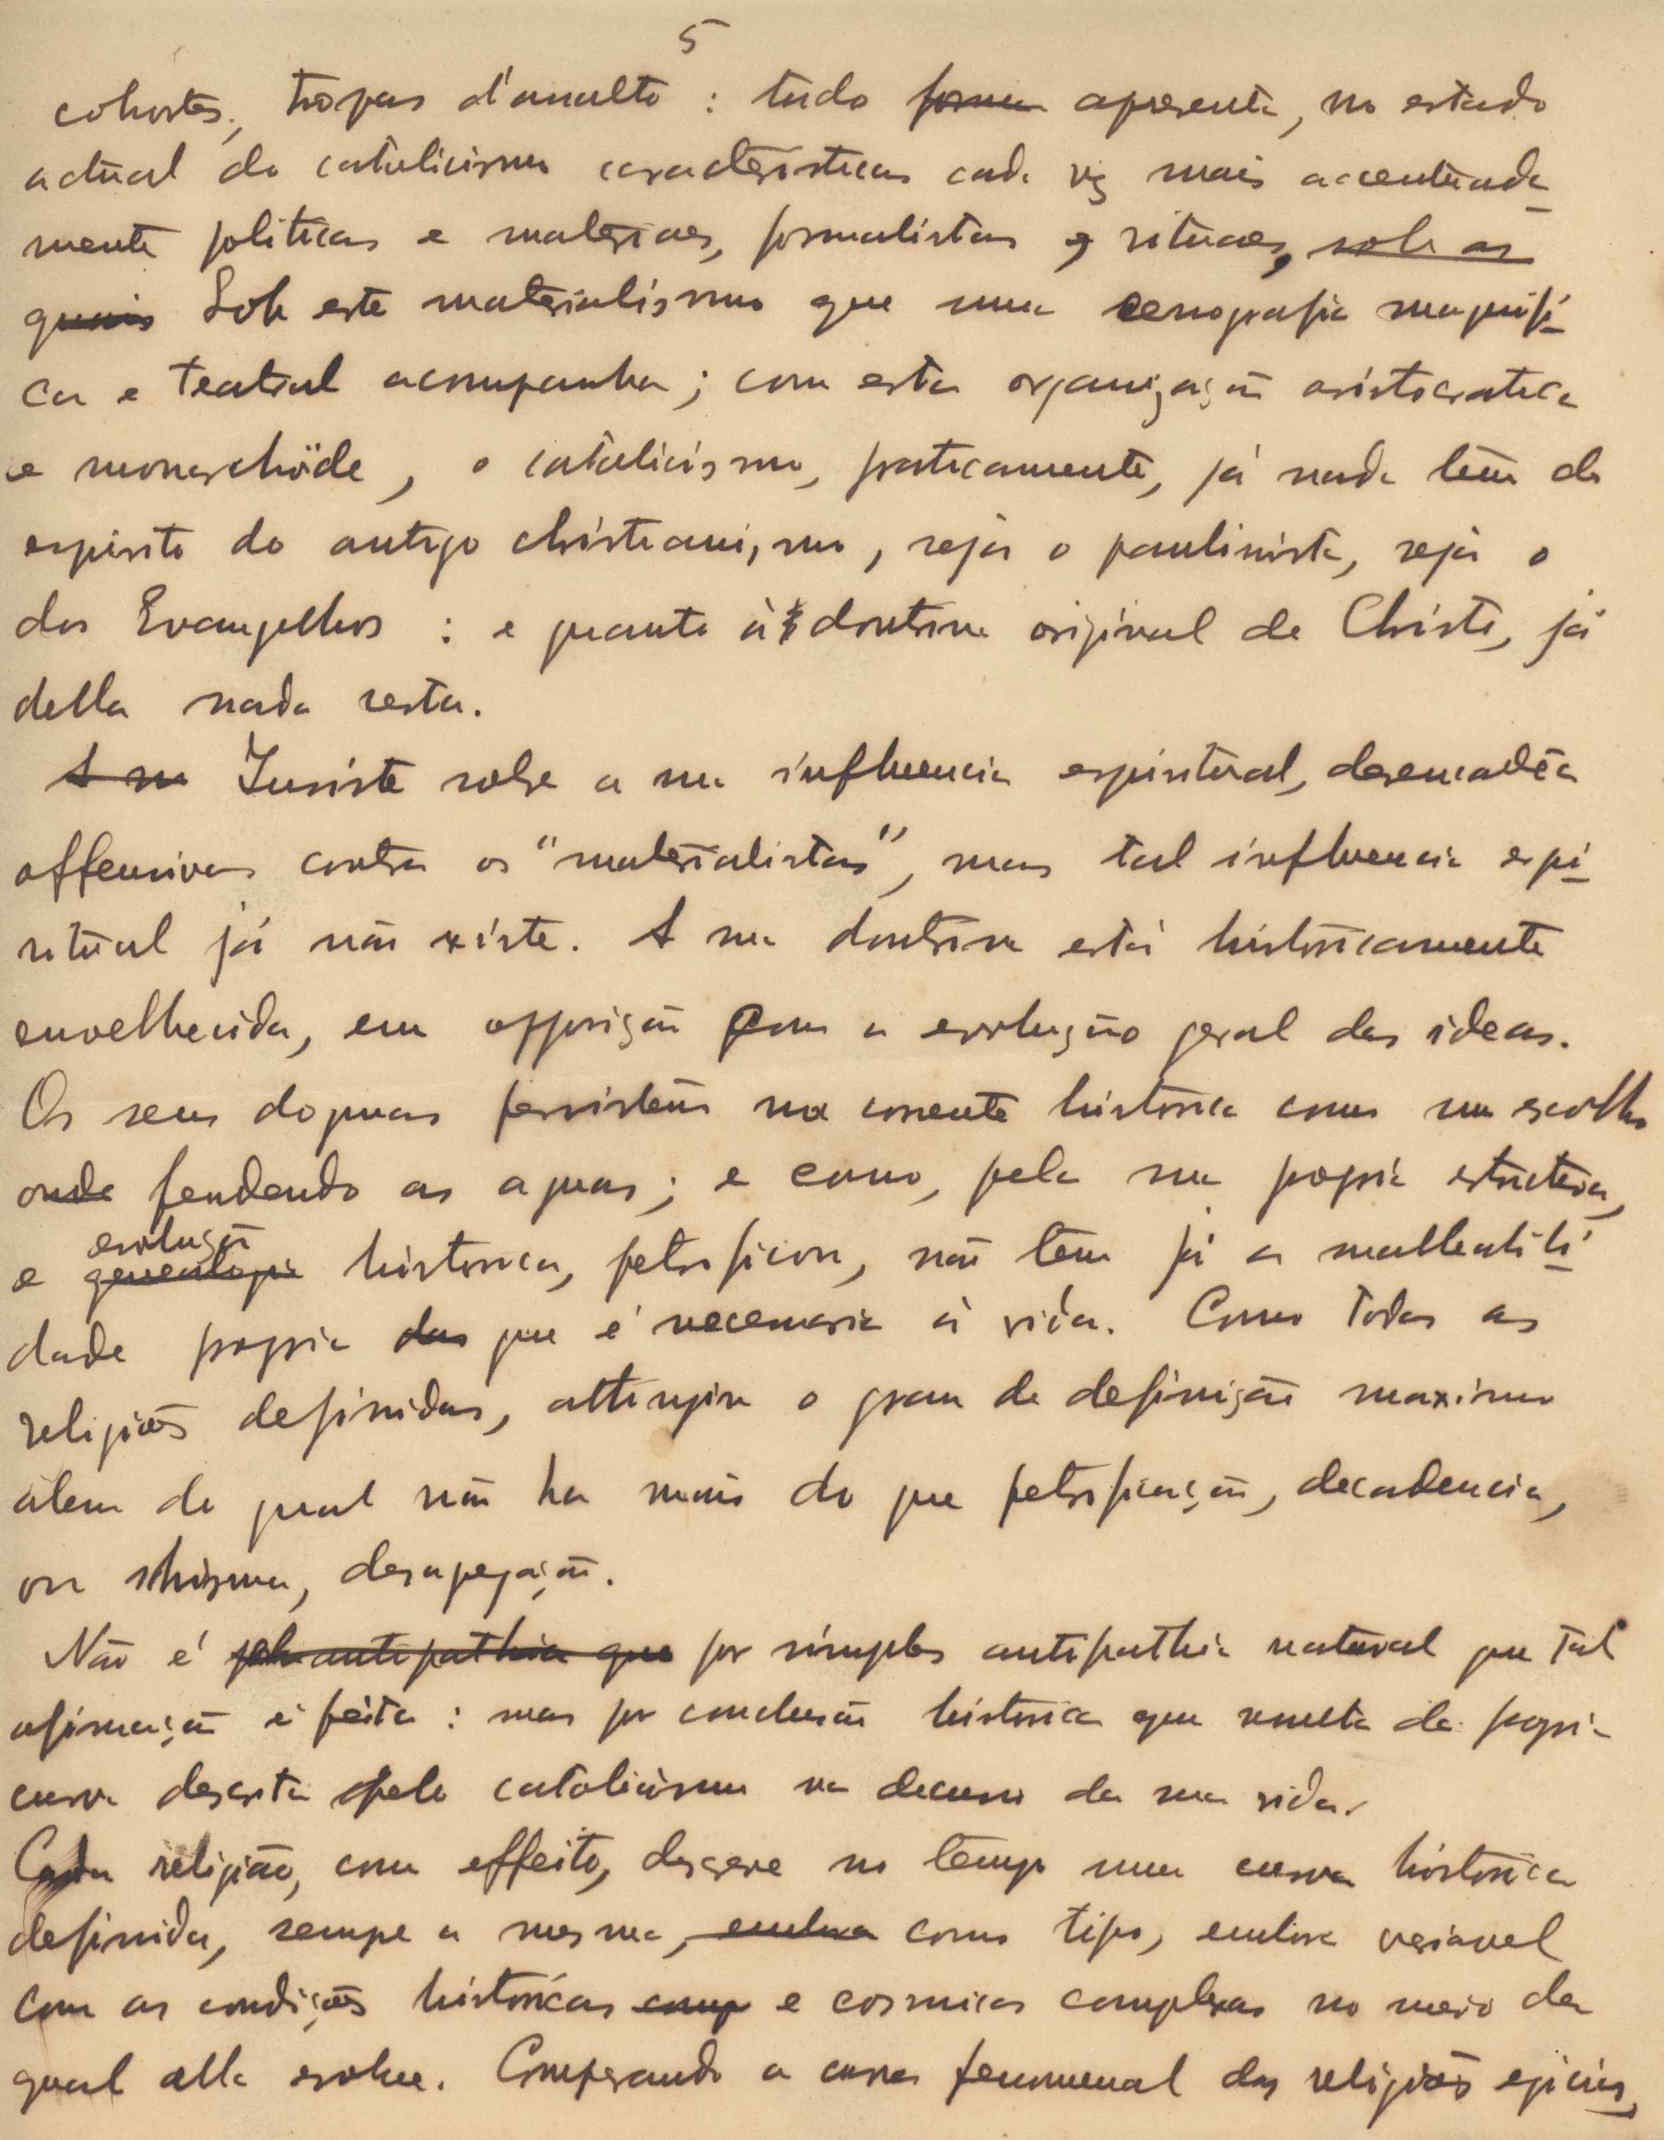 5
cohortes, tropas d'assalto : tudo forma apresenta, no estado
actual do catolicismo caracteristicas cada vez mais accentuada-
mente politicas e materiaes, formalistas e rituaes, sob as
quais Sob este materialismo que uma cenografia magnifi-
ca e teatral acompanha; com esta organização aristocratica
e monarchöide, o catolicismo, praticamente, já nada tem do
espirito do antigo christianismo, seja o paulinista, seja o
dos Evangelhos : e quanto à doutrina original de Christo, já
della nada resta.
A su Insiste sobre a sua influencia espiritual, desencadêa
offensivas contra os "materialistas", mas tal influencia espi-
ritual já não existe. A sua doutrina está historicamente
envelhecida, em opposição com a evolução geral das ideas.
Os seus dogmas persistem na corrente historica como um escolho
onde fendendo as aguas; e como, pela sua propria estructura,
evolução
e genealogia historica, petrificou, não tem já a malleabili-
dade propria das que é necessaria á vida. Como todas as
religiões definidas, attingiu o grau de definição maximo
alem do qual não ha mais do que petrificação, decadencia,
ou schisma, desagregação.
Não é pela antipathia que por simples antipathia natural que tal
afirmação é feita : mas por conclusão historica que resulta da propria
curva descrita pelo catolicismo no decurso da sua vida.
Cada religião, com effeito, descreve no tempo uma curva historica
definida, sempre a mesma, embora como tipo, embora variavel
com as condições historicas comp e cosmicas complexas no meio da
qual ella evolue. Comparando a curva fenomenal das religiões egicias,